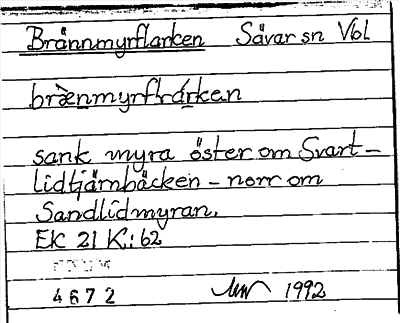 Brännmyrflarken Sävar sn Vbl
brænmyrflárken
sank myra öster om Svart-
lidtjärnbäcken - norr om
Sandlidmyran.
EK 21 K: 62
4672 1992